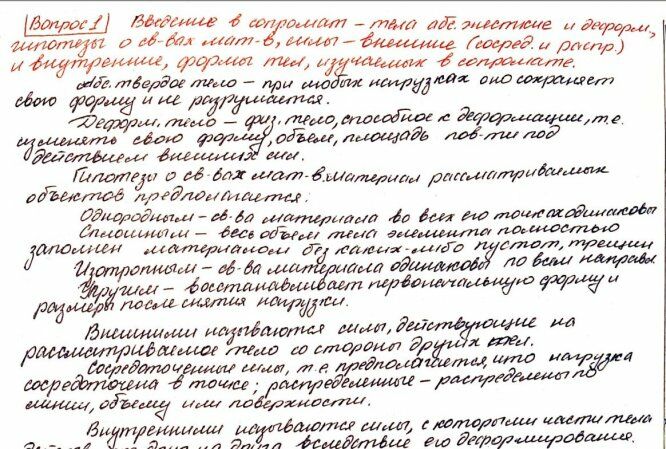 Вопрос 1 Введение в сопромат – тела абс. жесткие и деформ,
гипотезы о св-вах мат-в, силы – внешние (сосред. и распр.)
и внутренние, формы тел, изучаемых в сопромате.
Абс. твердое тело – при любых нагрузках оно сохраняет
свою форму и не разрушается.
Деформ. тело – физ. тело, способное к деформации, т.е.
изменять свою форму, объем, площадь пов-ти под
действием внешних сил.
Гипотезы о св-вах мат-в. Материал рассматриваемых
объектов предполагается:
Однородным – св-ва материала во всех его точках одинаковы
Сплошным – весь объем тела элемента полностью
заполнен материалом без каких-либо пустот, трещин
Изотропным – св-ва материала одинаковы по всем направл.
Упругим – восстанавливает первоначальную форму и
размеры после снятия нагрузки.
Внешними называются силы, действующие на
рассматриваемое тело со стороны других тел.
Сосредоточенные силы, т.е. предполагается, что нагрузка
сосредоточена в точке; распределенные – распределены по
линии, объему или поверхности.
Внутренними называются силы, с которыми части тела
друг на друга вследствие его деформирования.